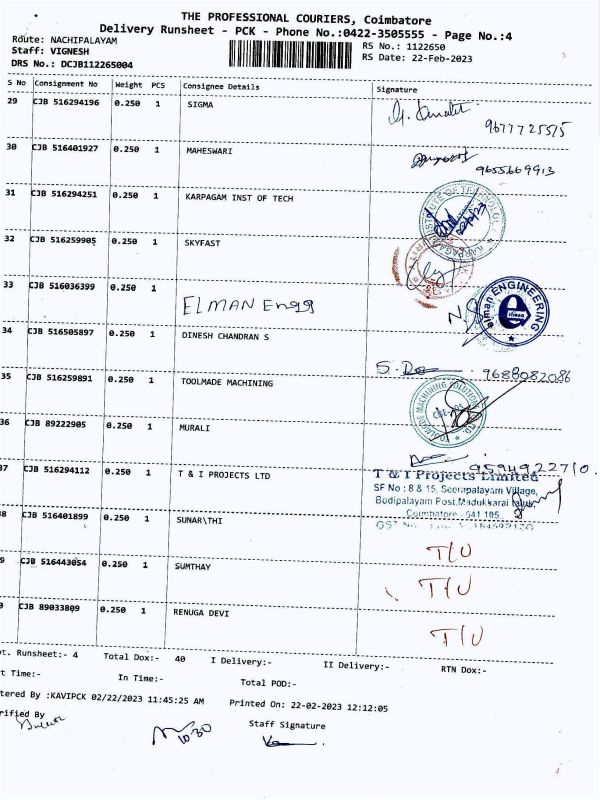 THE PROFESSIONAL COURIERS, Coimbatore
Delivery Runsheet - PCK - Phone No.:0422-3505555 - Page No.:4
Route: NACHIPALAYAM
RS No.: 1122650
Staff: VIGNESH
RS Date: 22-Feb-2023
DRS No.: DCJB112265004
S No Consignment No Weight PCS Consignee Details Signature
29 CJB 516294196 0.250 1 SIGMA
9677725515
30 CJB 516401927 0.250 1 MAHESWARI
9655669913
31 CJB 516294251 0.250 1 KARPAGAM INST OF TECH
32 CJB 516259905 0.250 1 SKYFAST
33 CJB 516036399 0.250 1 ELMAN Engg
elman ENGINEERING
e
elman
34 CJB 516505897 0.250 1 DINESH CHANDRAN S
9688082086
35 CJB 516259891 0.250 1 TOOLMADE MACHINING
36 CJB 89222905 0.250 1 MURALI
9594922710.
37 CJB 516294112 0.250 1 T & I PROJECTS LTD
T & I Projects Limited
SF No : 8 & 15, Seerapalayam Village,
Bodipalayam Post, Madukkarai Taluk,
Coimbatore - 641 105.
8 CJB 516401899 0.250 1 SUNAR\THI T/U
9 CJB 516443054 0.250 1 SUMTHAY T/U
0 CJB 89033809 0.250 1 RENUGA DEVI T/U
ot. Runsheet:- 4 Total Dox:- 40 I Delivery:- II Delivery:- RTN Dox:-
t Time:- In Time:- Total POD:-
tered By :KAVIPCK 02/22/2023 11:45:25 AM Printed On: 22-02-2023 12:12:05
rified By
10:30
Staff Signature